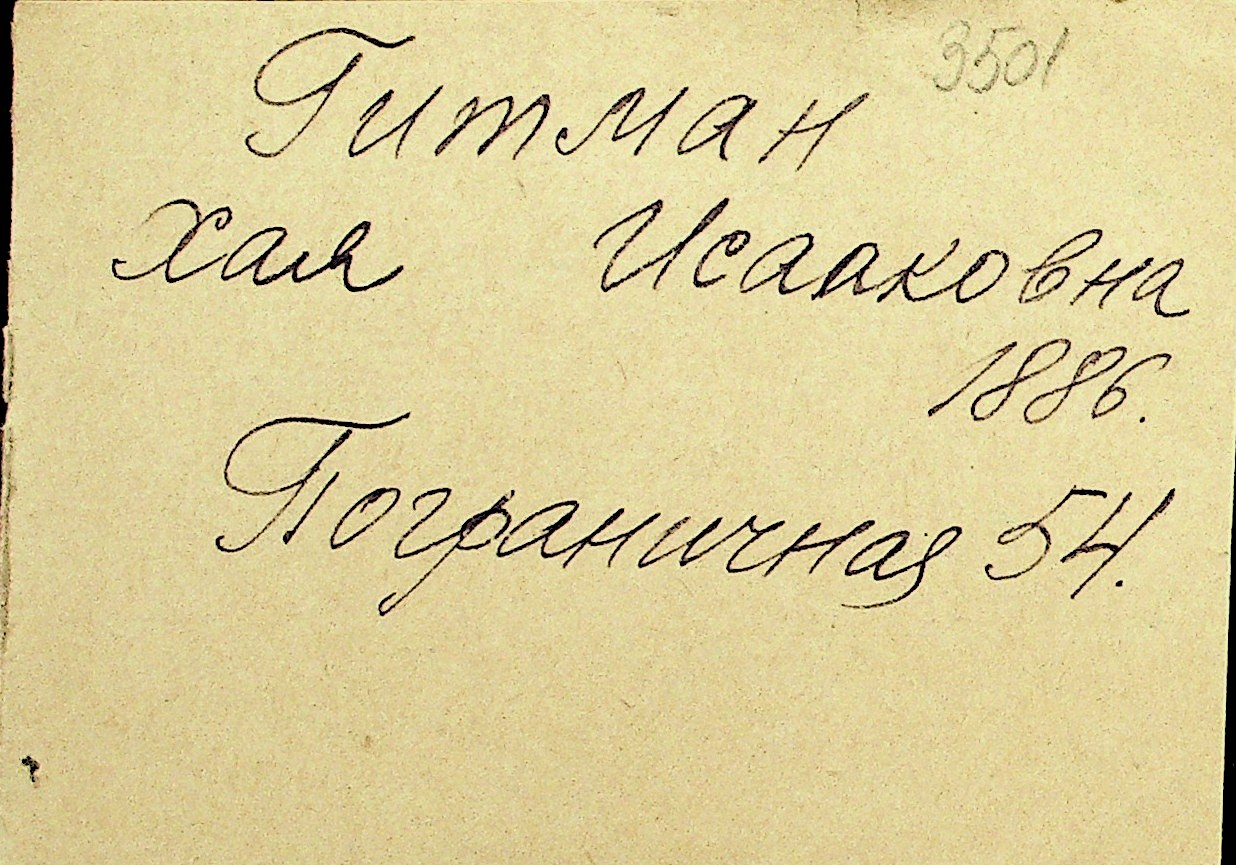 3501
Гитман
Хая Исааковна
1886.
Пограничная 54.